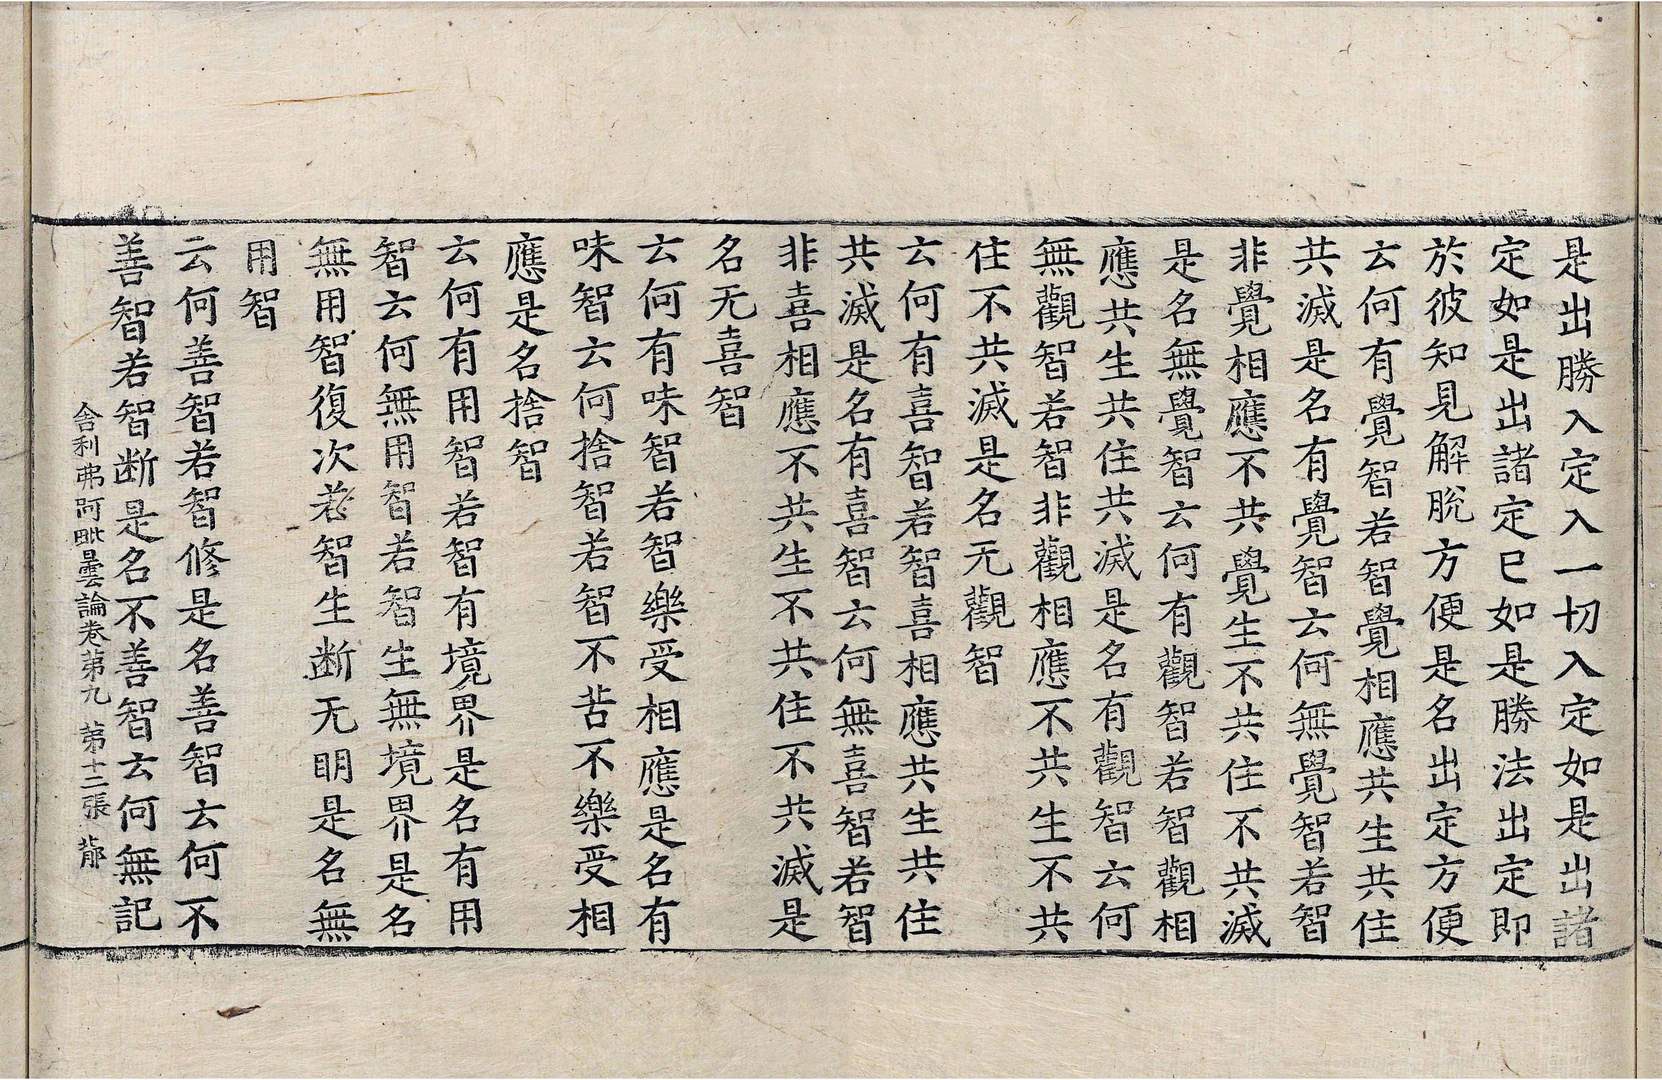 是出勝入定入一切入定如是出諸
定如是出諸定已如是勝法出定即
於彼知見解脫方便是名出定方便
云何有覺智若智覺相應共生共住
共滅是名有覺智云何無覺智若智
非覺相應不共覺生不共住不共滅
是名無覺智云何有觀智若智觀相
應共生共住共滅是名有觀智云何
無觀智若智非觀相應不共生不共
住不共滅是名无觀智
云何有喜智若智喜相應共生共住
共滅是名有喜智云何無喜智若智
非喜相應不共生不共住不共滅是
名无喜智
云何有味智若智樂受相應是名有
味智云何捨智若智不苦不樂受相
應是名捨智
云何有用智若智有境界是名有用
智云何無用智若智生無境界是名
無用智復次若智生断无明是名無
用智
云何善智若智修是名善智云何不
善智若智断是名不善智云何無記
舍利弗阿毗曇論卷苐九 苐十二張